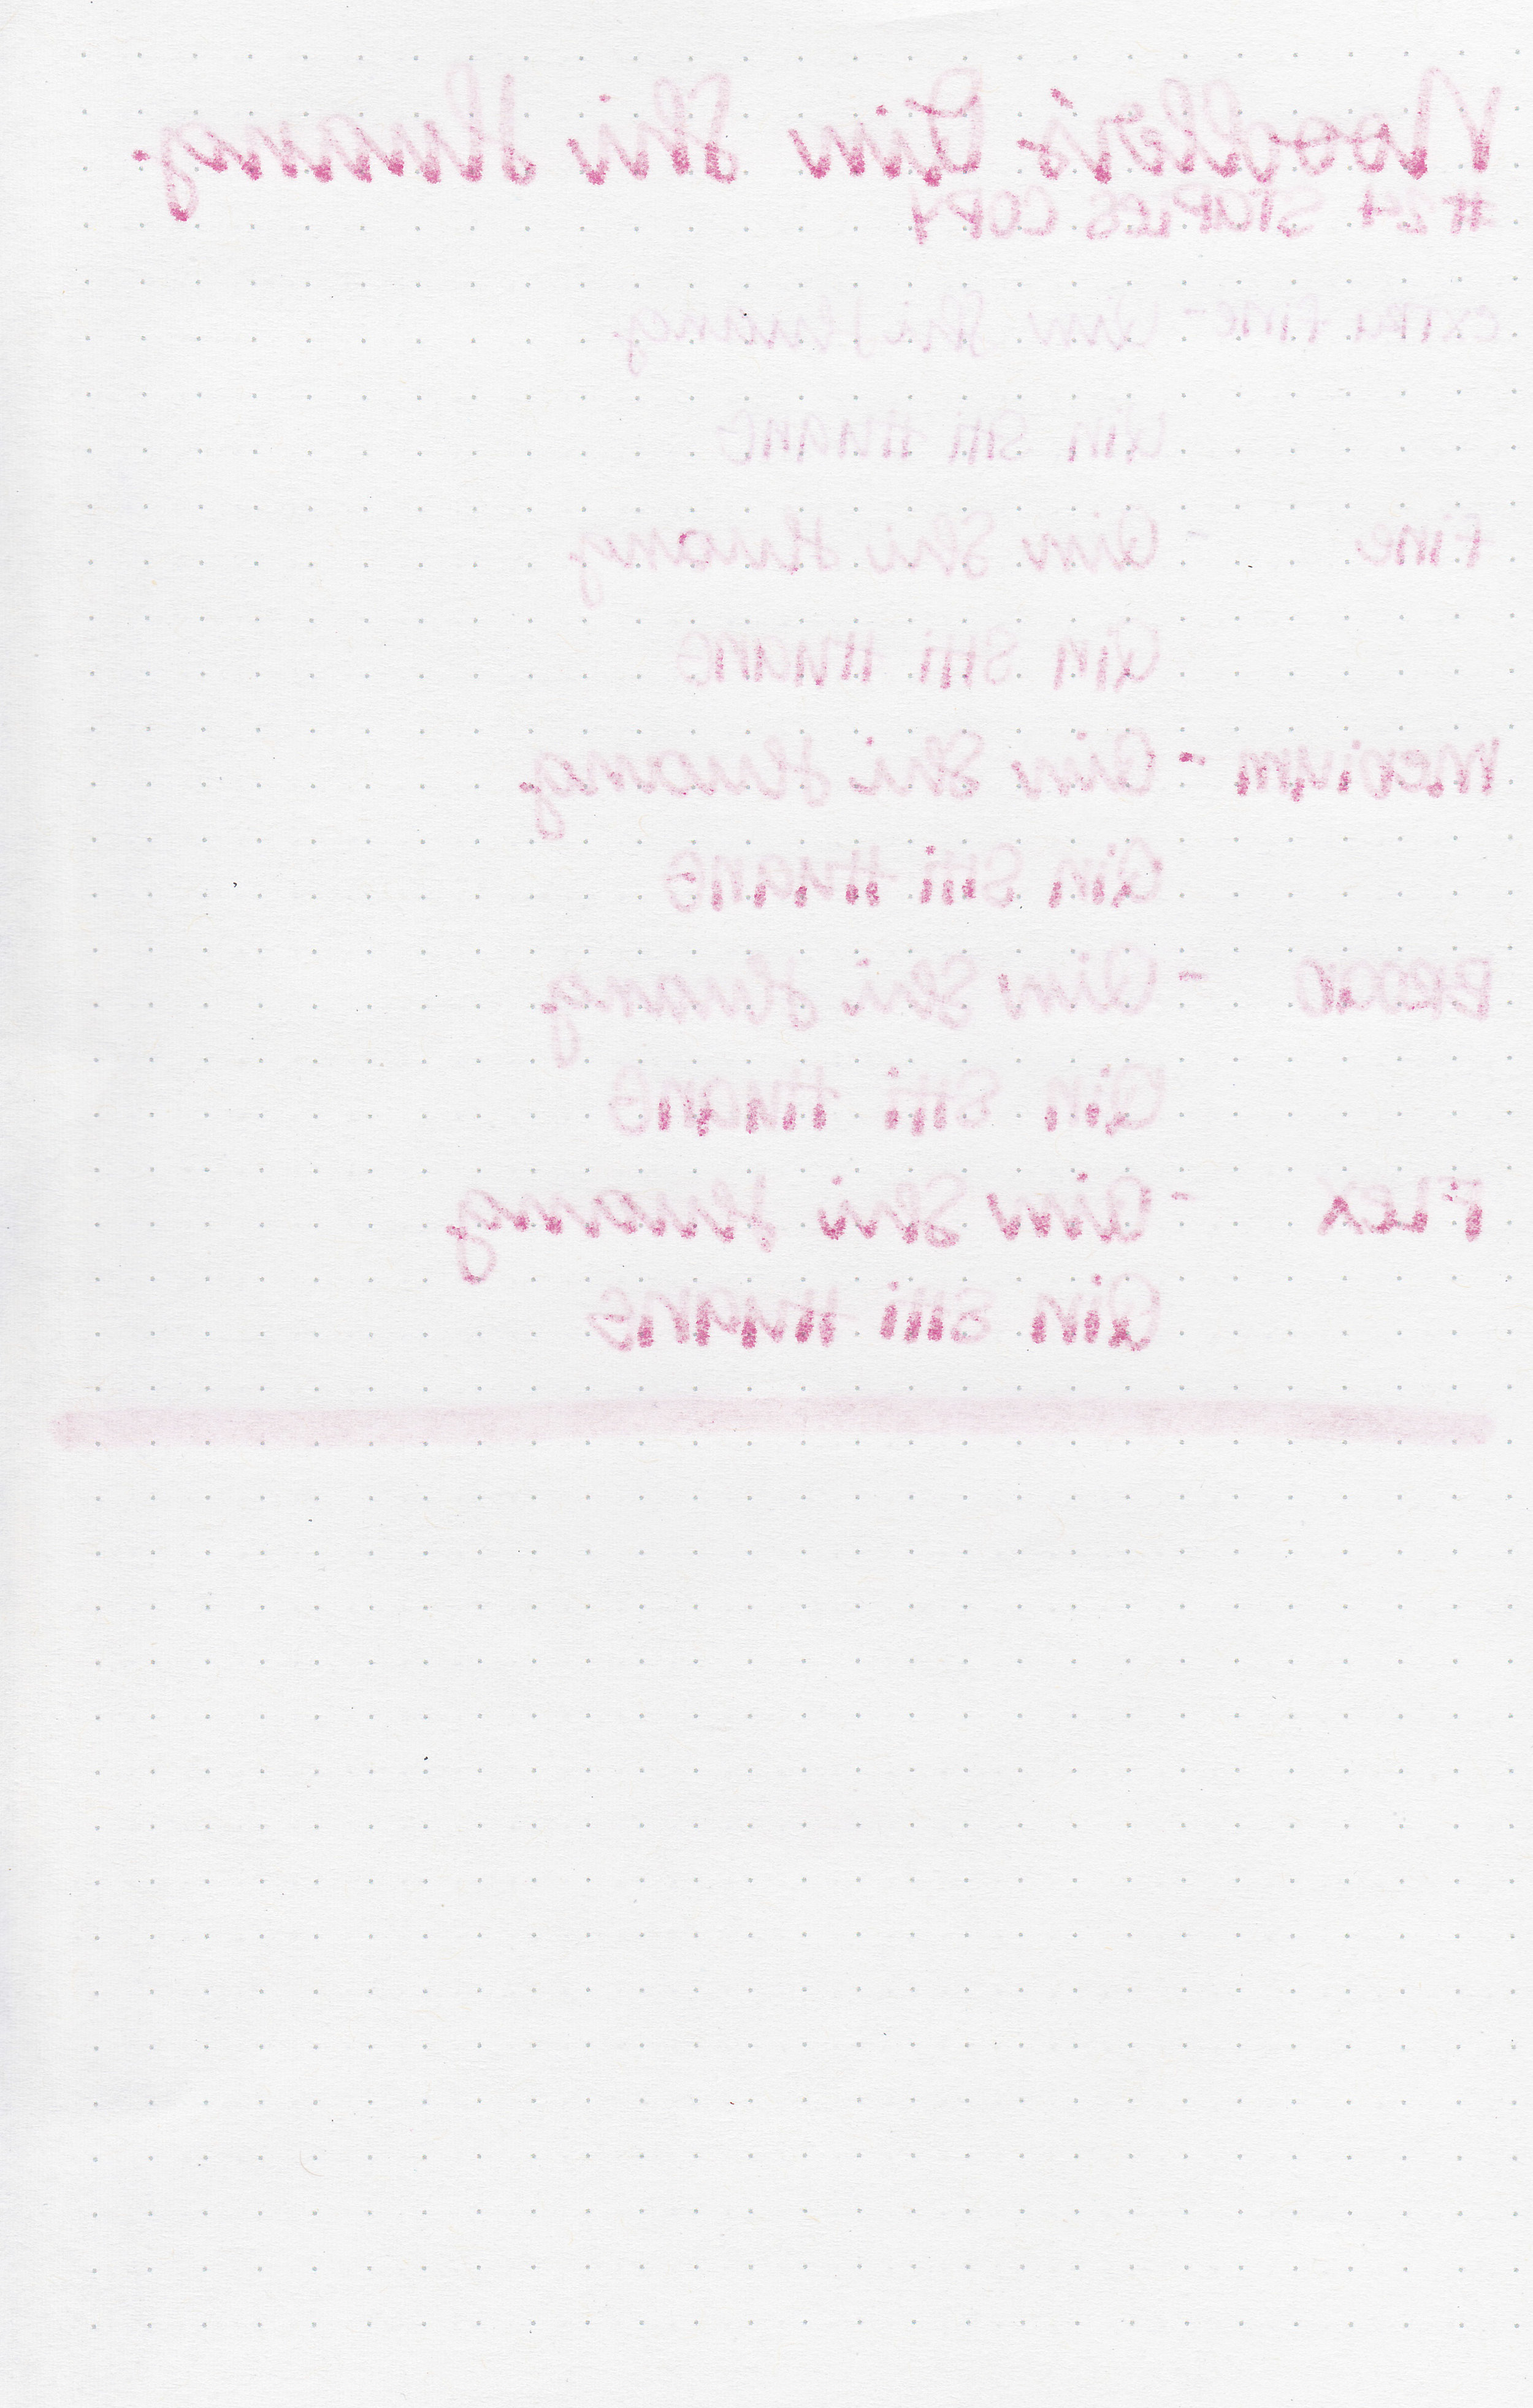 Noodler's Qin Shi Huang
#24 STAPLES COPY
EXTRA FINE - Qin Shi Huang
Qin SHi HUANG
FINE - Qin Shi Huang
Qin SHi HUANG
MEDIUM - Qin Shi Huang
Qin SHi HUANG
BROAD - Qin Shi Huang
Qin SHi HUANG
FLEX - Qin Shi Huang
Qin SHi HUANG